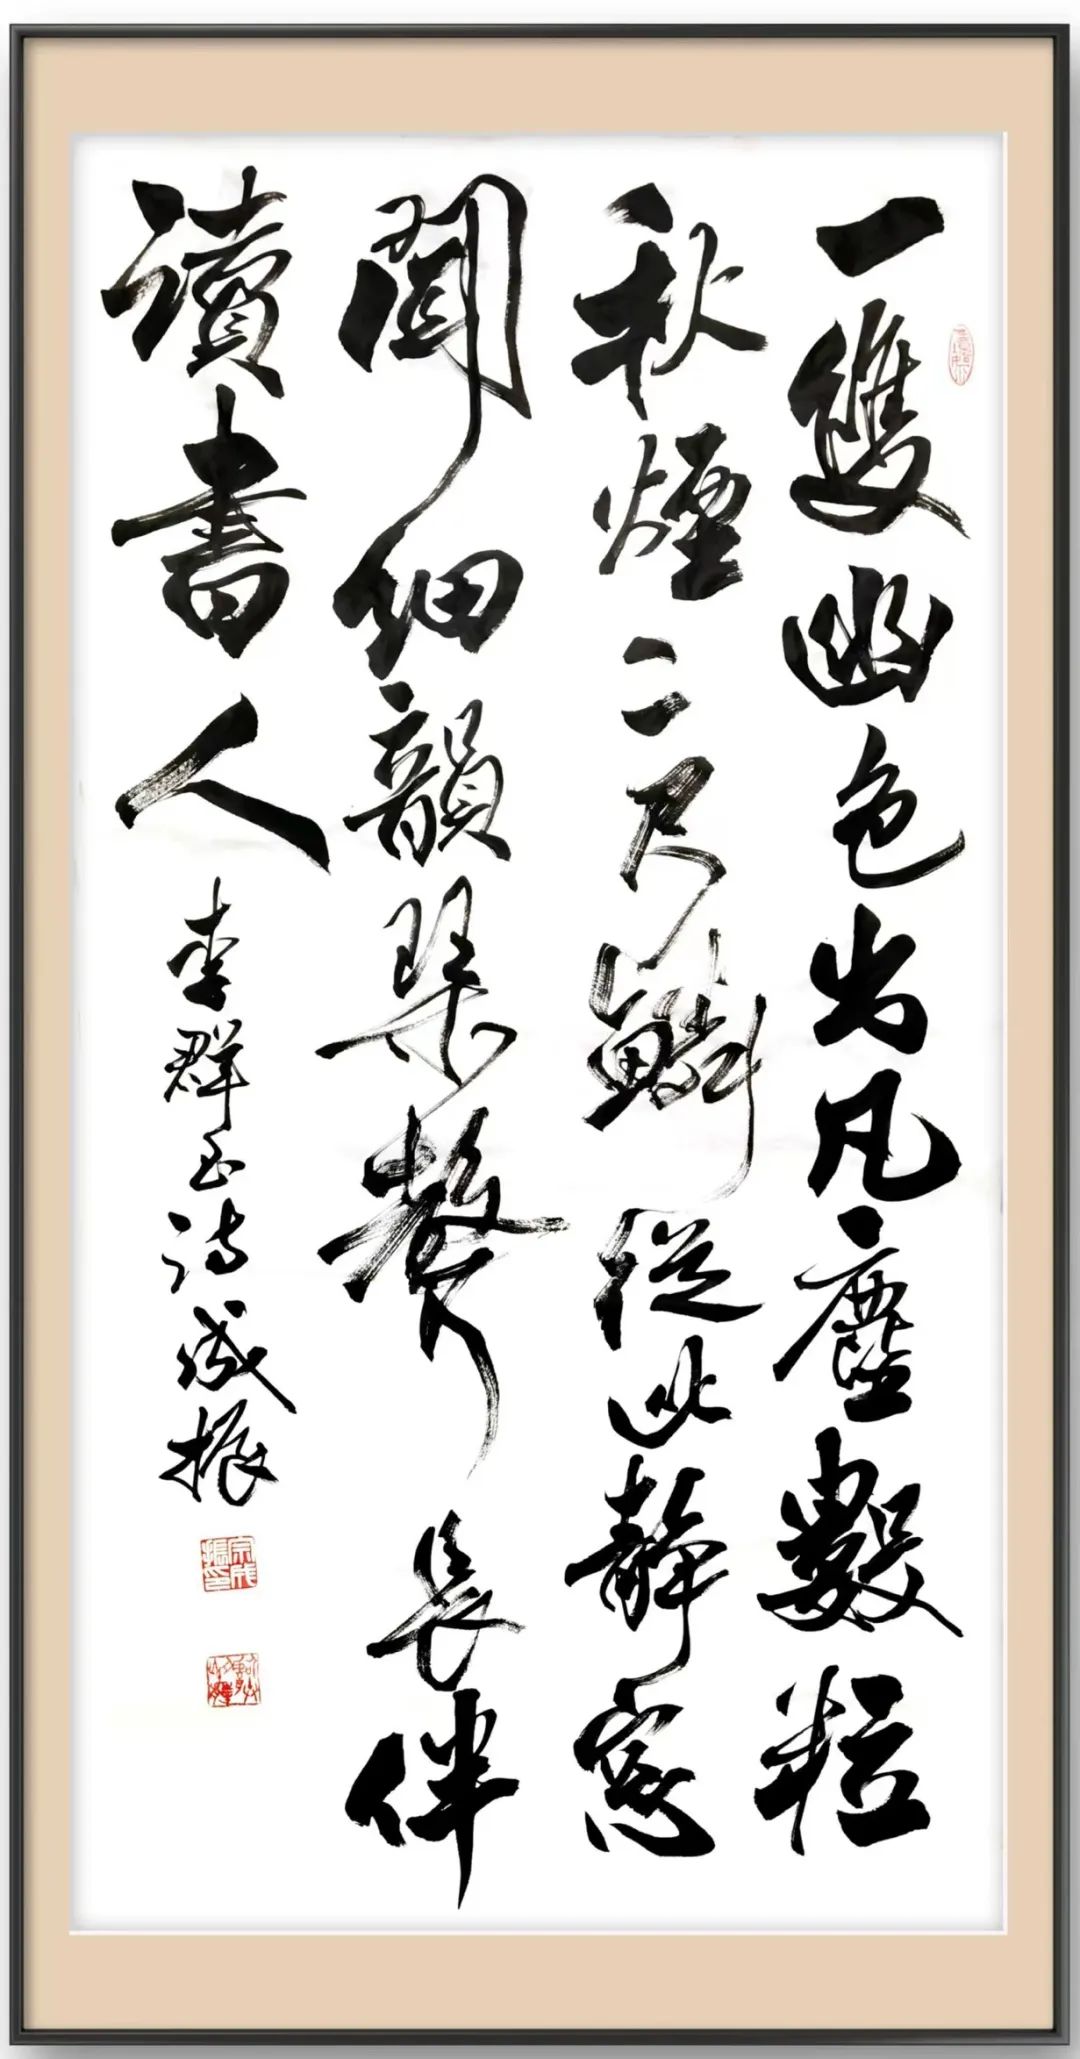 一雙幽色出凡塵數粒
秋煙二尺鱗從此靜窓
聞細韻琴聲長伴
讀書人
李群玉詩成振
宗成振印